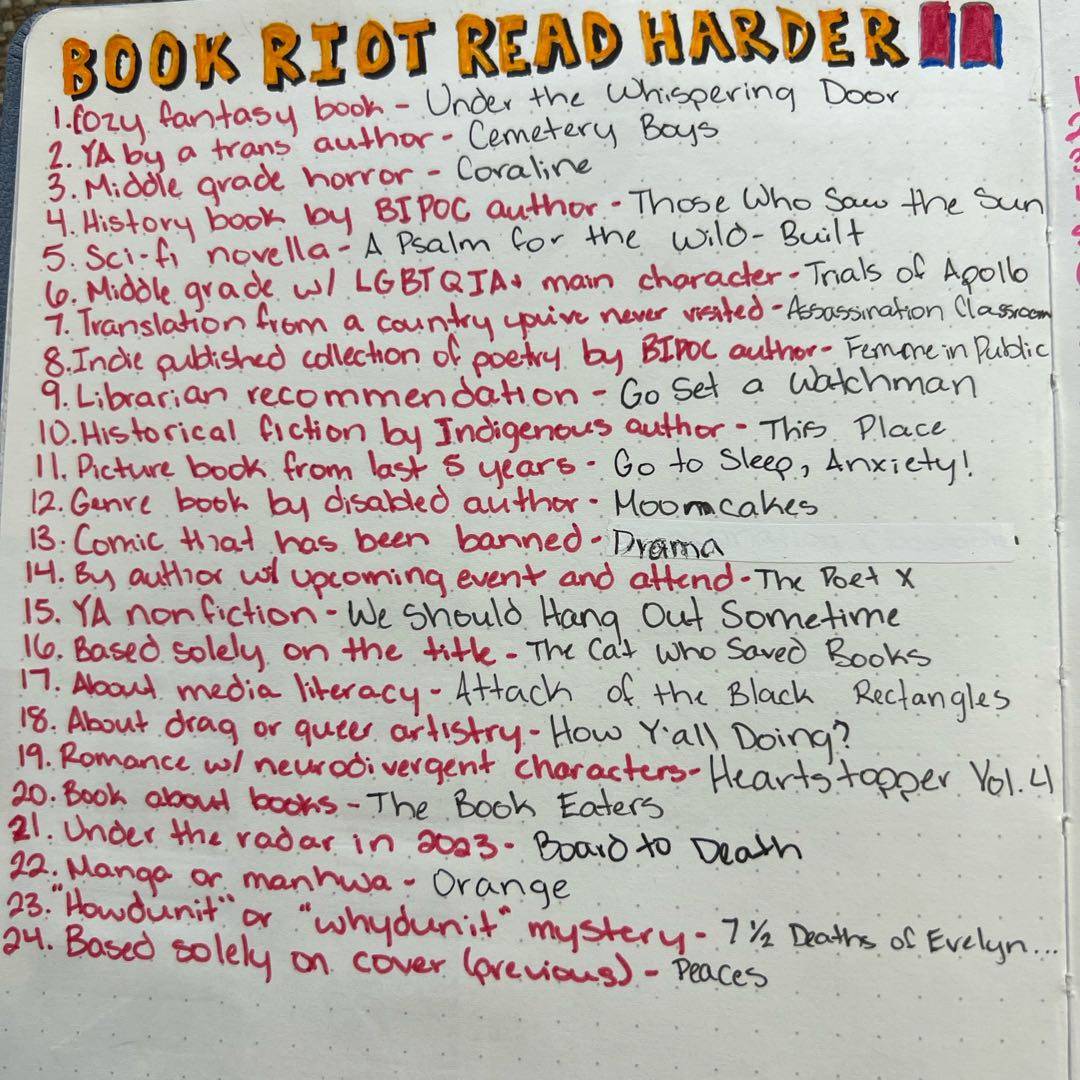 BOOK RIOT READ HARDER
1. Cozy fantasy book - Under the Whispering Door
2. YA by a trans author - Cemetery Boys
3. Middle grade horror - Coraline
4. History book by BIPOC author - Those Who Saw the Sun
5. Sci-fi novella - A Psalm for the Wild-Built
6. Middle grade w/ LGBTQIA+ main character - Trials of Apollo
7. Translation from a country you've never visited - Assassination Classroom
8. Indie published collection of poetry by BIPOC author - Femme in Public
9. Librarian recommendation - Go Set a Watchman
10. Historical fiction by Indigenous author - This Place
11. Picture book from last 5 years - Go to Sleep, Anxiety!
12. Genre book by disabled author - Mooncakes
13. Comic that has been banned - Drama
14. By author w/ upcoming event and attend - The Poet X
15. YA nonfiction - We Should Hang Out Sometime
16. Based solely on the title - The Cat Who Saved Books
17. About media literacy - Attack of the Black Rectangles
18. About drag or queer artistry - How Y'all Doing?
19. Romance w/ neurodivergent characters - Heartstopper Vol. 4
20. Book about books - The Book Eaters
21. Under the radar in 2023 - Board to Death
22. Manga or manhwa - Orange
23. "Howdunit" or "whydunit" mystery - 7 1/2 Deaths of Evelyn...
24. Based solely on cover (previous) - Peaces